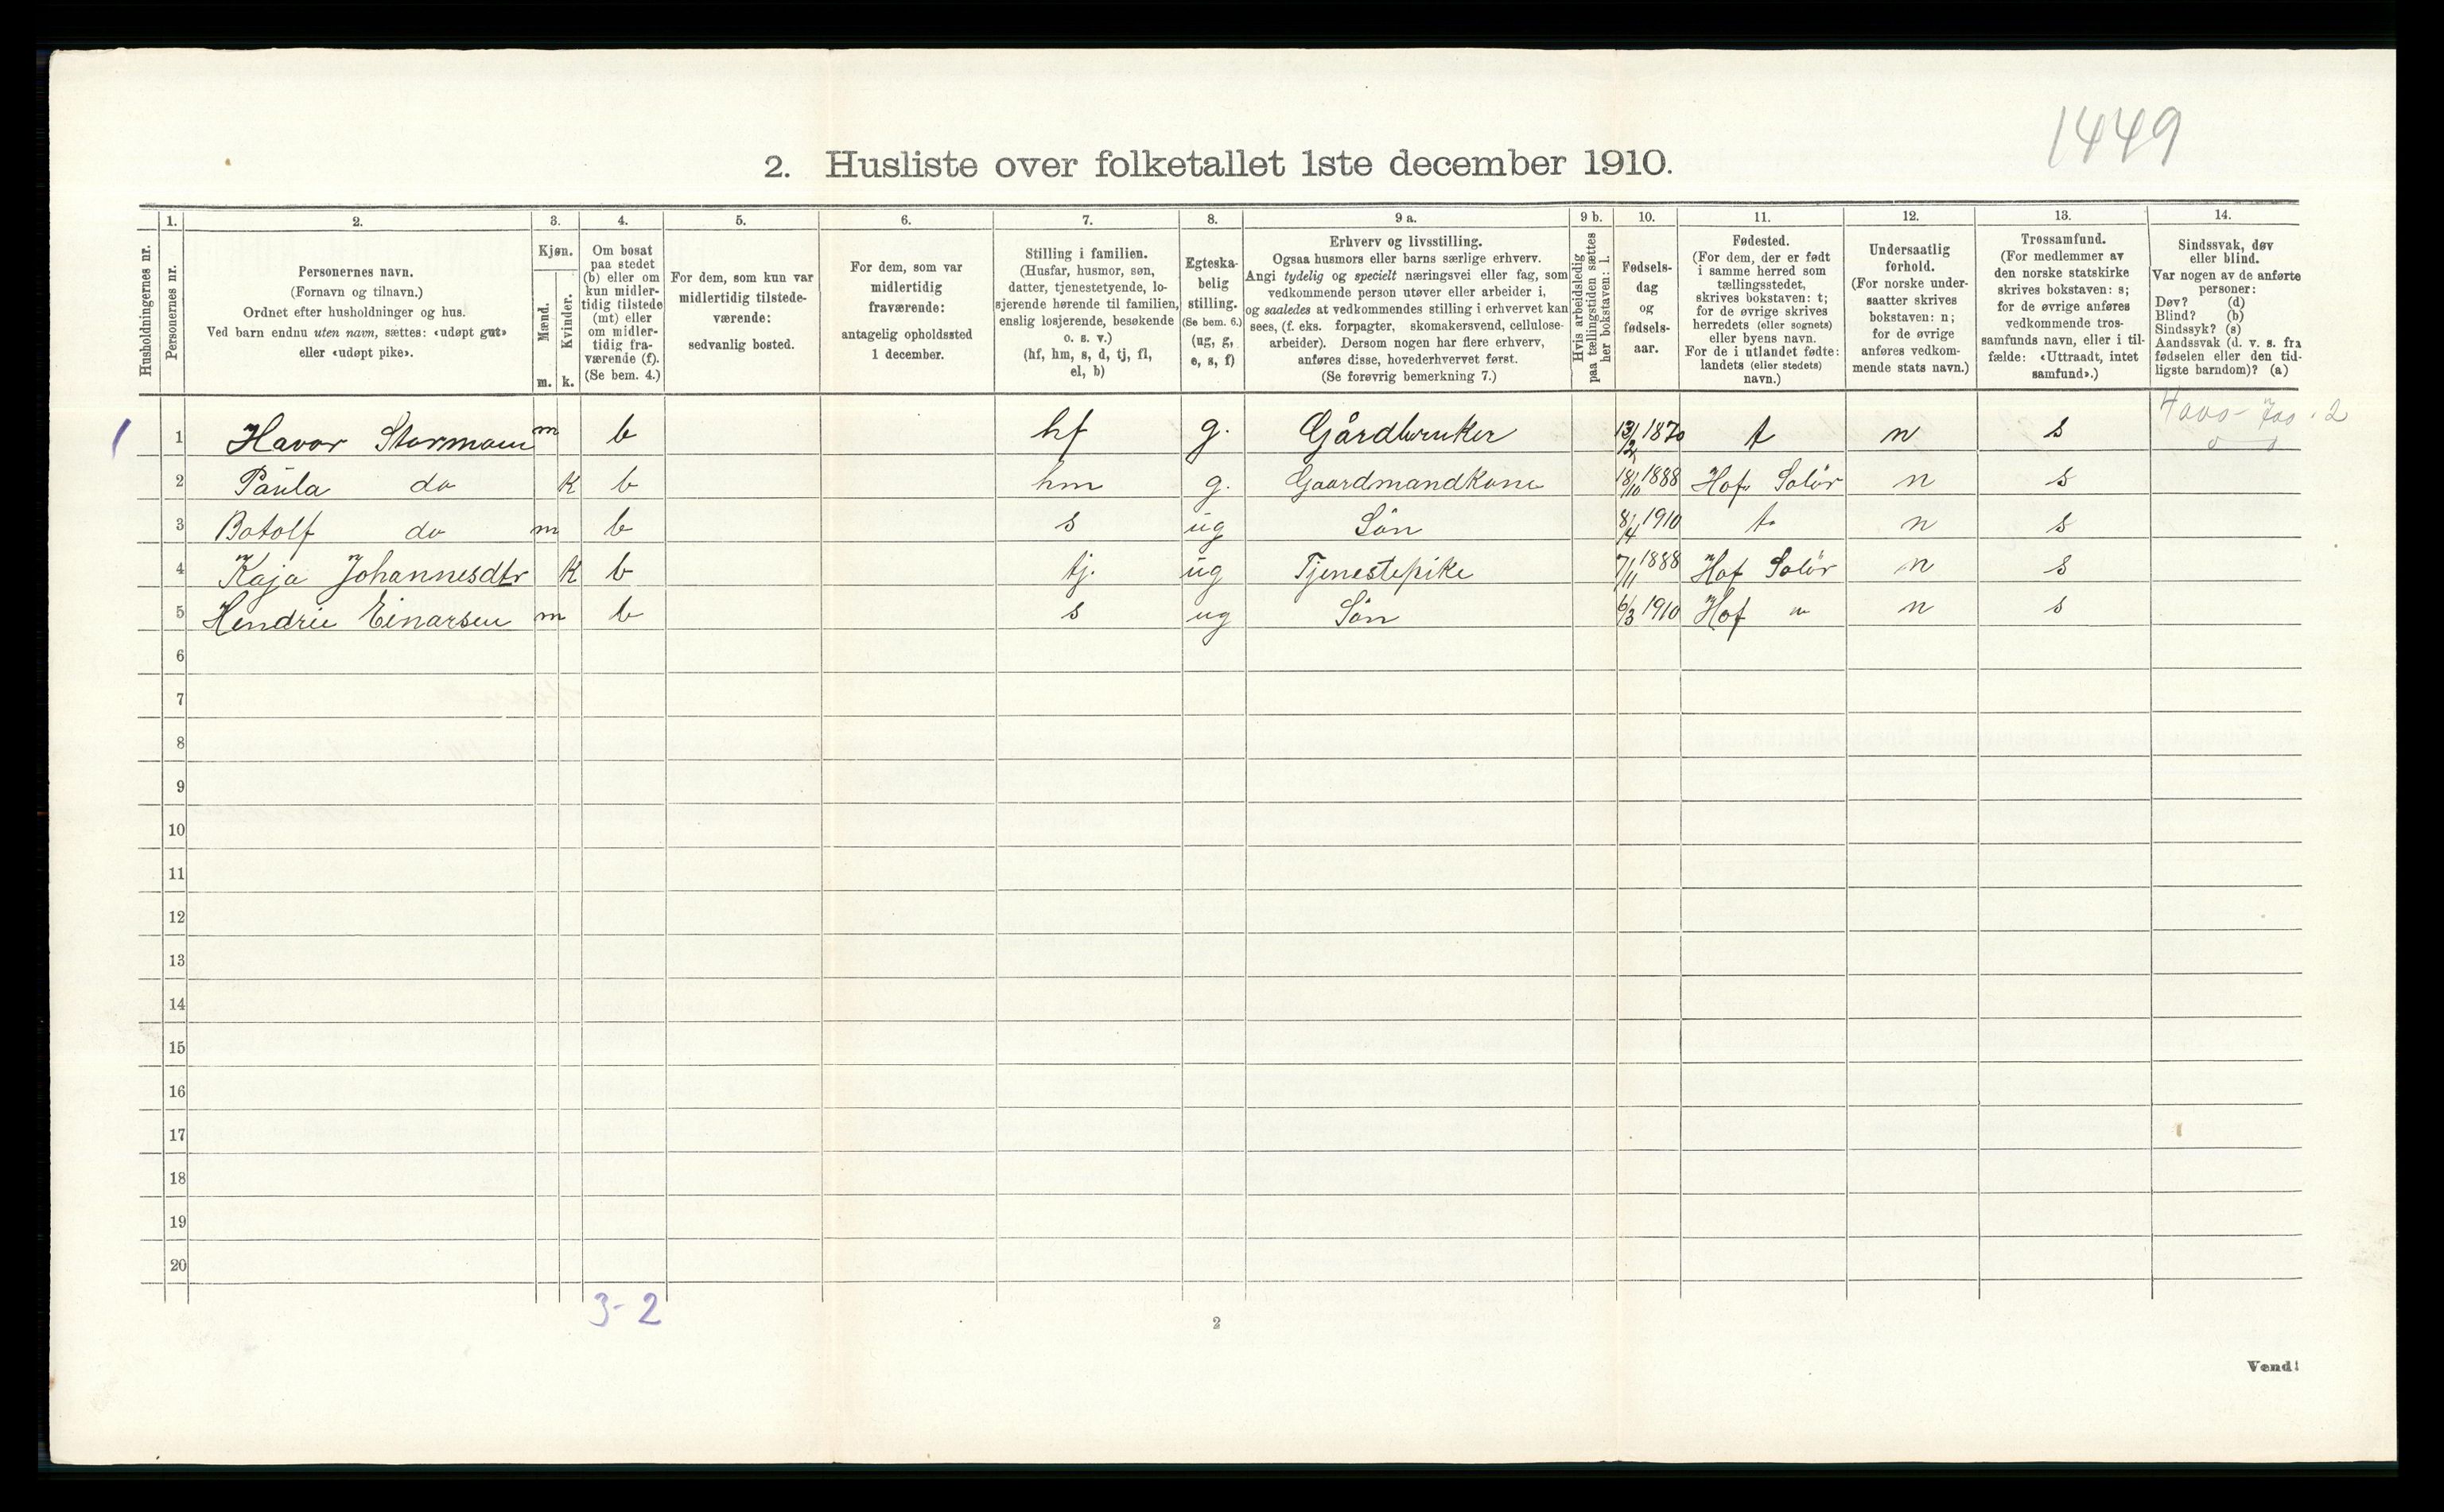 1449
2. Husliste over folketallet 1ste december 1910.
Husholdningernes nr.
1.
Personernes nr.
2.
Personernes navn.
(Fornavn og tilnavn.)
Ordnet efter husholdninger og hus.
Ved barn endnu uten navn, sættes: «udøpt gut»
eller «udøpt pike».
3.
Kjøn.
Mænd.
Kvinder.
m. k.
4.
Om bosat
paa stedet
(b) eller om
kun midler-
tidig tilstede
(mt) eller
om midler-
tidig fra-
værende (f).
(Se bem. 4.)
5.
For dem, som kun var
midlertidig tilstede-
værende:
sedvanlig bosted.
6.
For dem, som var
midlertidig
fraværende:
antagelig opholdssted
1 december.
7.
Stilling i familien.
(Husfar, husmor, søn,
datter, tjenestetyende, lo-
sjerende hørende til familien,
enslig losjerende, besøkende
o. s. v.)
(hf, hm, s, d, tj, fl,
el, b)
8.
Egteska-
belig
stilling.
(Se bem. 6.)
(ug, g,
e, s, f)
9 a.
Erhverv og livsstilling.
Ogsaa husmors eller barns særlige erhverv.
Angi tydelig og specielt næringsvei eller fag, som
vedkommende person utøver eller arbeider i,
og saaledes at vedkommendes stilling i erhvervet kan
sees, (f. eks. forpagter, skomakersvend, cellulose-
arbeider). Dersom nogen har flere erhverv,
anføres disse, hovederhvervet først.
(Se forøvrig bemerkning 7.)
9 b.
Hvis arbeidsledig
paa tællingstiden sættes
her bokstaven: l.
10.
Fødsels-
dag
og
fødsels-
aar.
11.
Fødested.
(For dem, der er født
i samme herred som
tællingsstedet,
skrives bokstaven: t;
for de øvrige skrives
herredets (eller sognets)
eller byens navn.
For de i utlandet fødte:
landets (eller stedets)
navn.)
12.
Undersaatlig
forhold.
(For norske under-
saatter skrives
bokstaven: n;
for de øvrige
anføres vedkom-
mende stats navn.)
13.
Trossamfund.
(For medlemmer av
den norske statskirke
skrives bokstaven: s;
for de øvrige anføres
vedkommende tros-
samfunds navn, eller i til-
fælde: «Uttraadt, intet
samfund».)
14.
Sindssvak, døv
eller blind.
Var nogen av de anførte
personer:
Døv? (d)
Blind? (b)
Sindssyk? (s)
Aandssvak (d. v. s. fra
fødselen eller den tid-
ligste barndom)? (a)
1 Havor Stormoen m b hf g. Gårdbruker 13/2 1870 t n s
2 Paula do k b hm g. Gaardmandkone 18/10 1888 Hof Solör n s
3 Botolf do m b s ug Sön 8/4 1910 t. n s
4 Kaja Johannesdtr k b tj. ug Tjenestepike 7/11 1888 Hof Solör n s
5 Hendrie Einarsen m b s ug Sön 6/3 1910 Hof " n s
6
7
8
9
10
11
12
13
14
15
16
17
18
19
20
3-2
2
Vend!